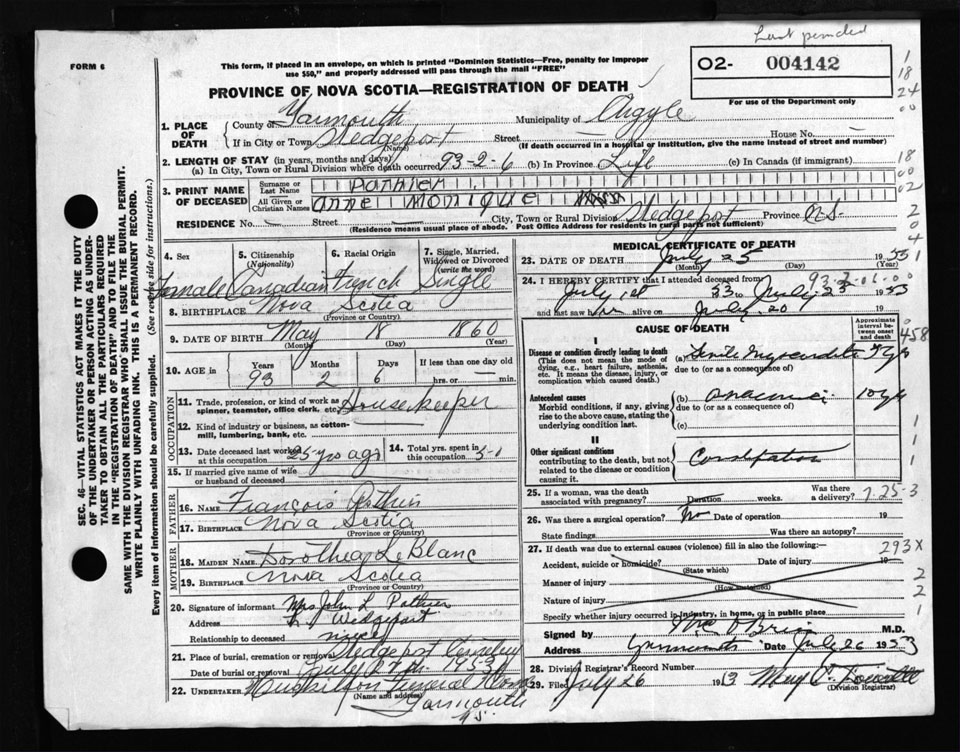 Last pended
FORM 6
This form, if placed in an envelope, on which is printed "Dominion Statistics—Free, penalty for improper
use $50," and properly addressed will pass through the mail "FREE"
O2- 004142
For use of the Department only
PROVINCE OF NOVA SCOTIA—REGISTRATION OF DEATH
1. PLACE OF DEATH
County of Yarmouth Municipality of Argyle
If in City or Town Wedgeport Street House No. —
(Name) (If death occurred in a hospital or institution, give the name instead of street and number)
2. LENGTH OF STAY (in years, months and days)
(a) In City, Town or Rural Division where death occurred 93-2-6 (b) In Province Life (c) In Canada (if immigrant)
3. PRINT NAME OF DECEASED
Surname or Last Name Pothier
All Given or Christian Names Anne Monique
RESIDENCE No. — Street — City, Town or Rural Division Wedgeport Province N.S.
(Residence means usual place of abode. Post Office Address for residents in rural parts not sufficient)
4. Sex Female
5. Citizenship (Nationality) Canadian
6. Racial Origin French
7. Single, Married, Widowed or Divorced (write the word) Single
8. BIRTHPLACE Nova Scotia
(Province or Country)
9. DATE OF BIRTH May 18 1860
(Month) (Day) (Year)
10. AGE in Years 93 Months 2 Days 6 If less than one day old hrs. or — min.
OCCUPATION
11. Trade, profession, or kind of work as spinner, teamster, office clerk, etc. Housekeeper
12. Kind of industry or business, as cotton-mill, lumbering, bank, etc.
13. Date deceased last worked at this occupation 25 yrs ago
14. Total yrs. spent in this occupation 50
15. If married give name of wife or husband of deceased
FATHER
16. NAME François Pothier
17. BIRTHPLACE Nova Scotia
(Province or Country)
MOTHER
18. MAIDEN NAME Dorothea LeBlanc
19. BIRTHPLACE Nova Scotia
(Province or Country)
20. Signature of informant Mrs. John L Pothier
Address Wedgeport
Relationship to deceased niece
21. Place of burial, cremation or removal Wedgeport Cemetery
Date of burial or removal July 27th 1953
22. UNDERTAKER Funeral Home
(Name and address) Yarmouth
N.S.
MEDICAL CERTIFICATE OF DEATH
23. DATE OF DEATH July 25 1953
(Month) (Day) (Year)
24. I HEREBY CERTIFY that I attended deceased from
July 1st 53 to July 25 1953
and last saw her alive on July 20 19
CAUSE OF DEATH
Approximate interval between onset and death
I
Disease or condition directly leading to death
(This does not mean the mode of dying, e.g., heart failure, asthenia, etc. It means the disease, injury, or complication which caused death.)
(a) Senile Myocarditis
due to (or as a consequence of)
Antecedent causes
Morbid conditions, if any, giving rise to the above cause, stating the underlying condition last.
(b) Anaemia 10 yrs
due to (or as a consequence of)
(c)
II
Other significant conditions
contributing to the death, but not related to the disease or condition causing it.
Constipation
25. If a woman, was the death associated with pregnancy? Duration weeks. Was there a delivery?
7-25-3
26. Was there a surgical operation? No Date of operation 19
State findings Was there an autopsy?
27. If death was due to external causes (violence) fill in also the following:— 293X
Accident, suicide or homicide? Date of injury 19
(State which)
Manner of injury
(How sustained)
Nature of injury
Specify whether injury occurred in industry, in home, or in public place
Signed by O'Brien M.D.
Address Yarmouth Date July 26 1953
28. Division Registrar's Record Number
29. Filed July 26 1953
(Division Registrar)
SEC. 46—VITAL STATISTICS ACT MAKES IT THE DUTY
OF THE UNDERTAKER OR PERSON ACTING AS UNDER-
TAKER TO OBTAIN ALL THE PARTICULARS REQUIRED
IN THE "REGISTRATION OF DEATH" AND TO FILE THE
SAME WITH THE DIVISION REGISTRAR WHO SHALL ISSUE THE BURIAL PERMIT.
WRITE PLAINLY WITH UNFADING INK. THIS IS A PERMANENT RECORD.
Every item of information should be carefully supplied. (See reverse side for instructions.)
1
18
24
00
18
00
02
2
0
4
1
458
1
1
1
2
2
1